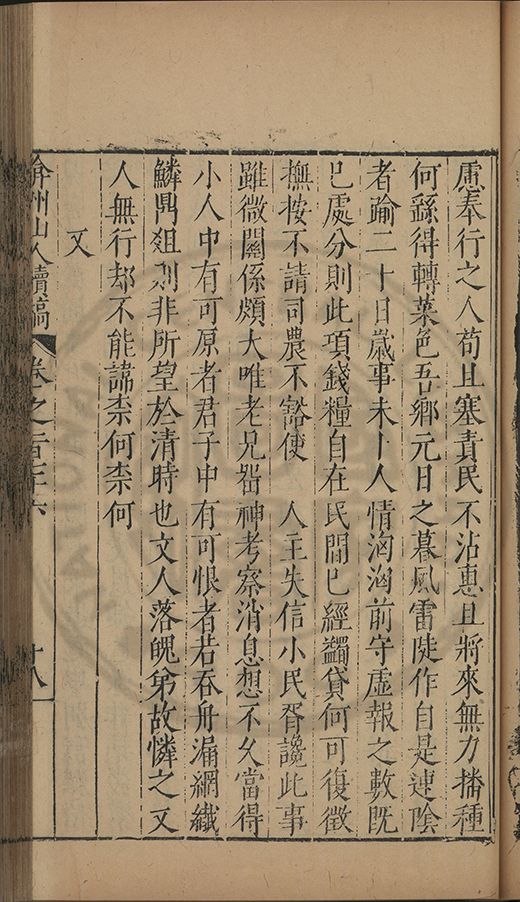 慮奉行之人苟且塞責民不沾惠且將來無力播種
何繇得轉菜色吾鄉元日之暮風雷陡作自是連陰
者踰二十日歲事未卜人情洶洶前守虛報之數既
已處分則此項錢糧自在民間已經蠲貸何可復徵
撫按不請司農不豁使　人主失信小民胥讒此事
雖微關係頗大唯老兄留神考察消息想不久當得
小人中有可原者君子中有可恨者若吞舟漏網纖
鱗鼎俎則非所望於清時也文人落魄弟故憐之又
人無行却不能諱柰何柰何
又
弇州山人續稿 卷之百
十八